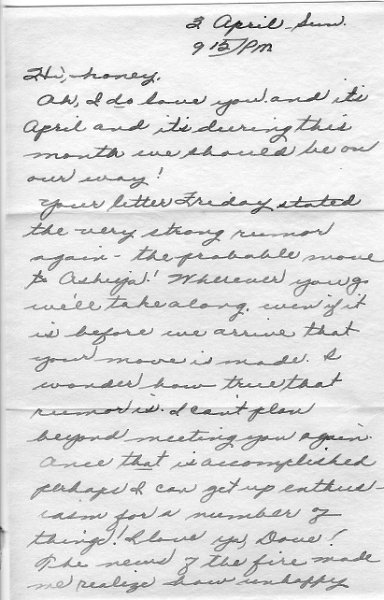 2 April Sun.
9 15/PM
Hi, honey,
Oh, I do love you and it's
April and it's during this
month we should be on
our way!
Your letter Friday stated
the very strong rumor
again - the probable move
to Ashiya! Wherever you go
we'll take along, even if it
is before we arrive that
your move is made. I
wonder how true that
rumor is. I can't plan
beyond meeting you again.
Once that is accomplished
perhaps I can get up enthus-
iasm for a number of
things! I love ya, Dave!
The news of the fire made
me realize how unhappy